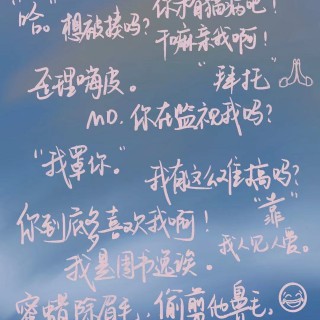 "哈。" 你有猫病吧!
想被揍吗? 干嘛亲我啊!
歪理嗨皮。 "拜托"
MD. 你在监视我吗?
"我罩你。"
我有这么难搞吗?
你到底多喜欢我啊! "靠"
我人见人爱。
我是图书逸诶。
蜜蜡除眉毛, 偷剪他鼻毛,